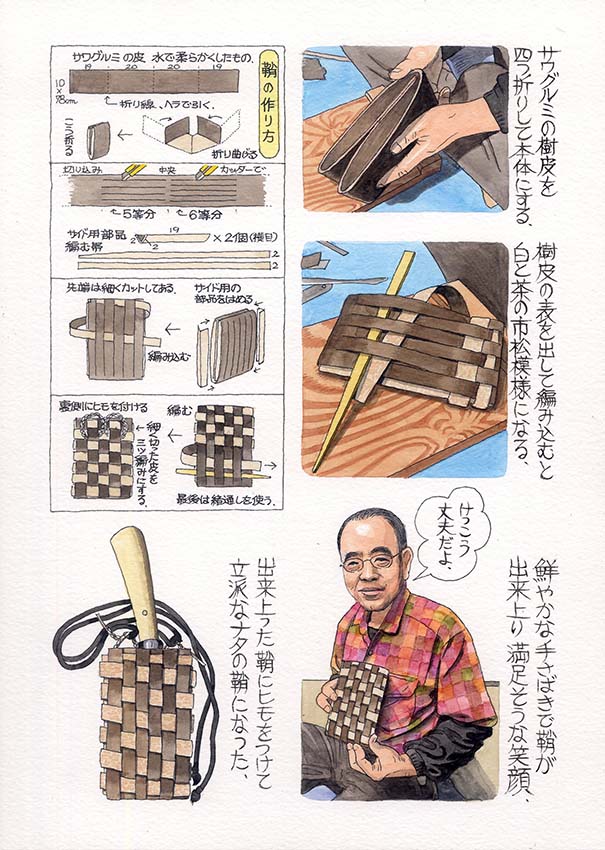 サワグルミの樹皮を
四つ折りして本体にする、
鞘の作り方
サワグルミの皮 水で柔らかくしたもの、
19 20 20 19
10
×
78cm
折り線、ヘラで引く、
こう折る
折り曲げる
切り込み 中央 カッターで
5等分 6等分
サイド用部品
19
2
2
×2個(横目)
編む帯
2
2
樹皮の表を出して編み込むと
白と茶の市松模様になる、
サイド用の
部品をはめる
先端は細くカットしてある、
編み込む
編む
最後は緒通しを使う、
裏側にヒモを付ける
細く切った皮を
三ツ編みにする、
鮮やかな手さばきで鞘が
出来上り満足そうな笑顔、
けっこう
丈夫だよ、
出来上った鞘にヒモをつけて
立派なナタの鞘になった、